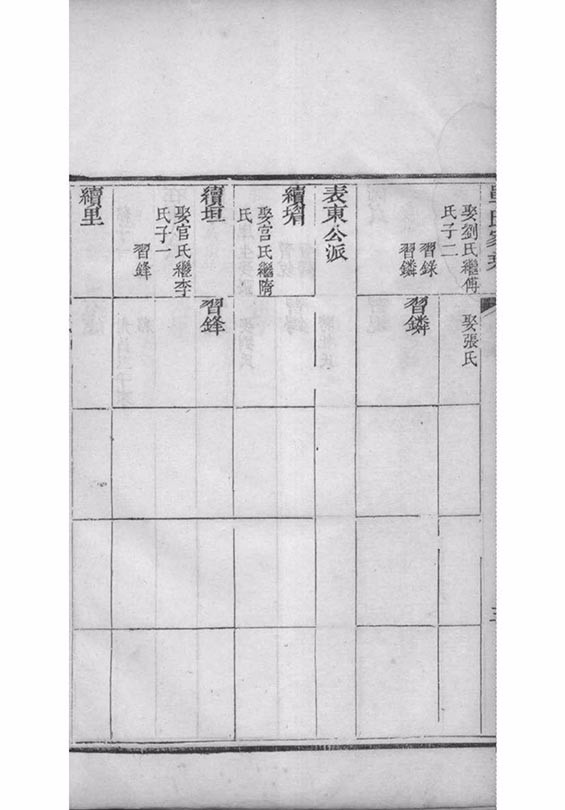 娶劉氏繼傅
氏子二
習銾
習鏻
娶張氏
習鏻
表東公派
續堉
娶宫氏繼隋
氏
續垣
娶官氏繼李
氏子一
習鋒
習鋒
續里